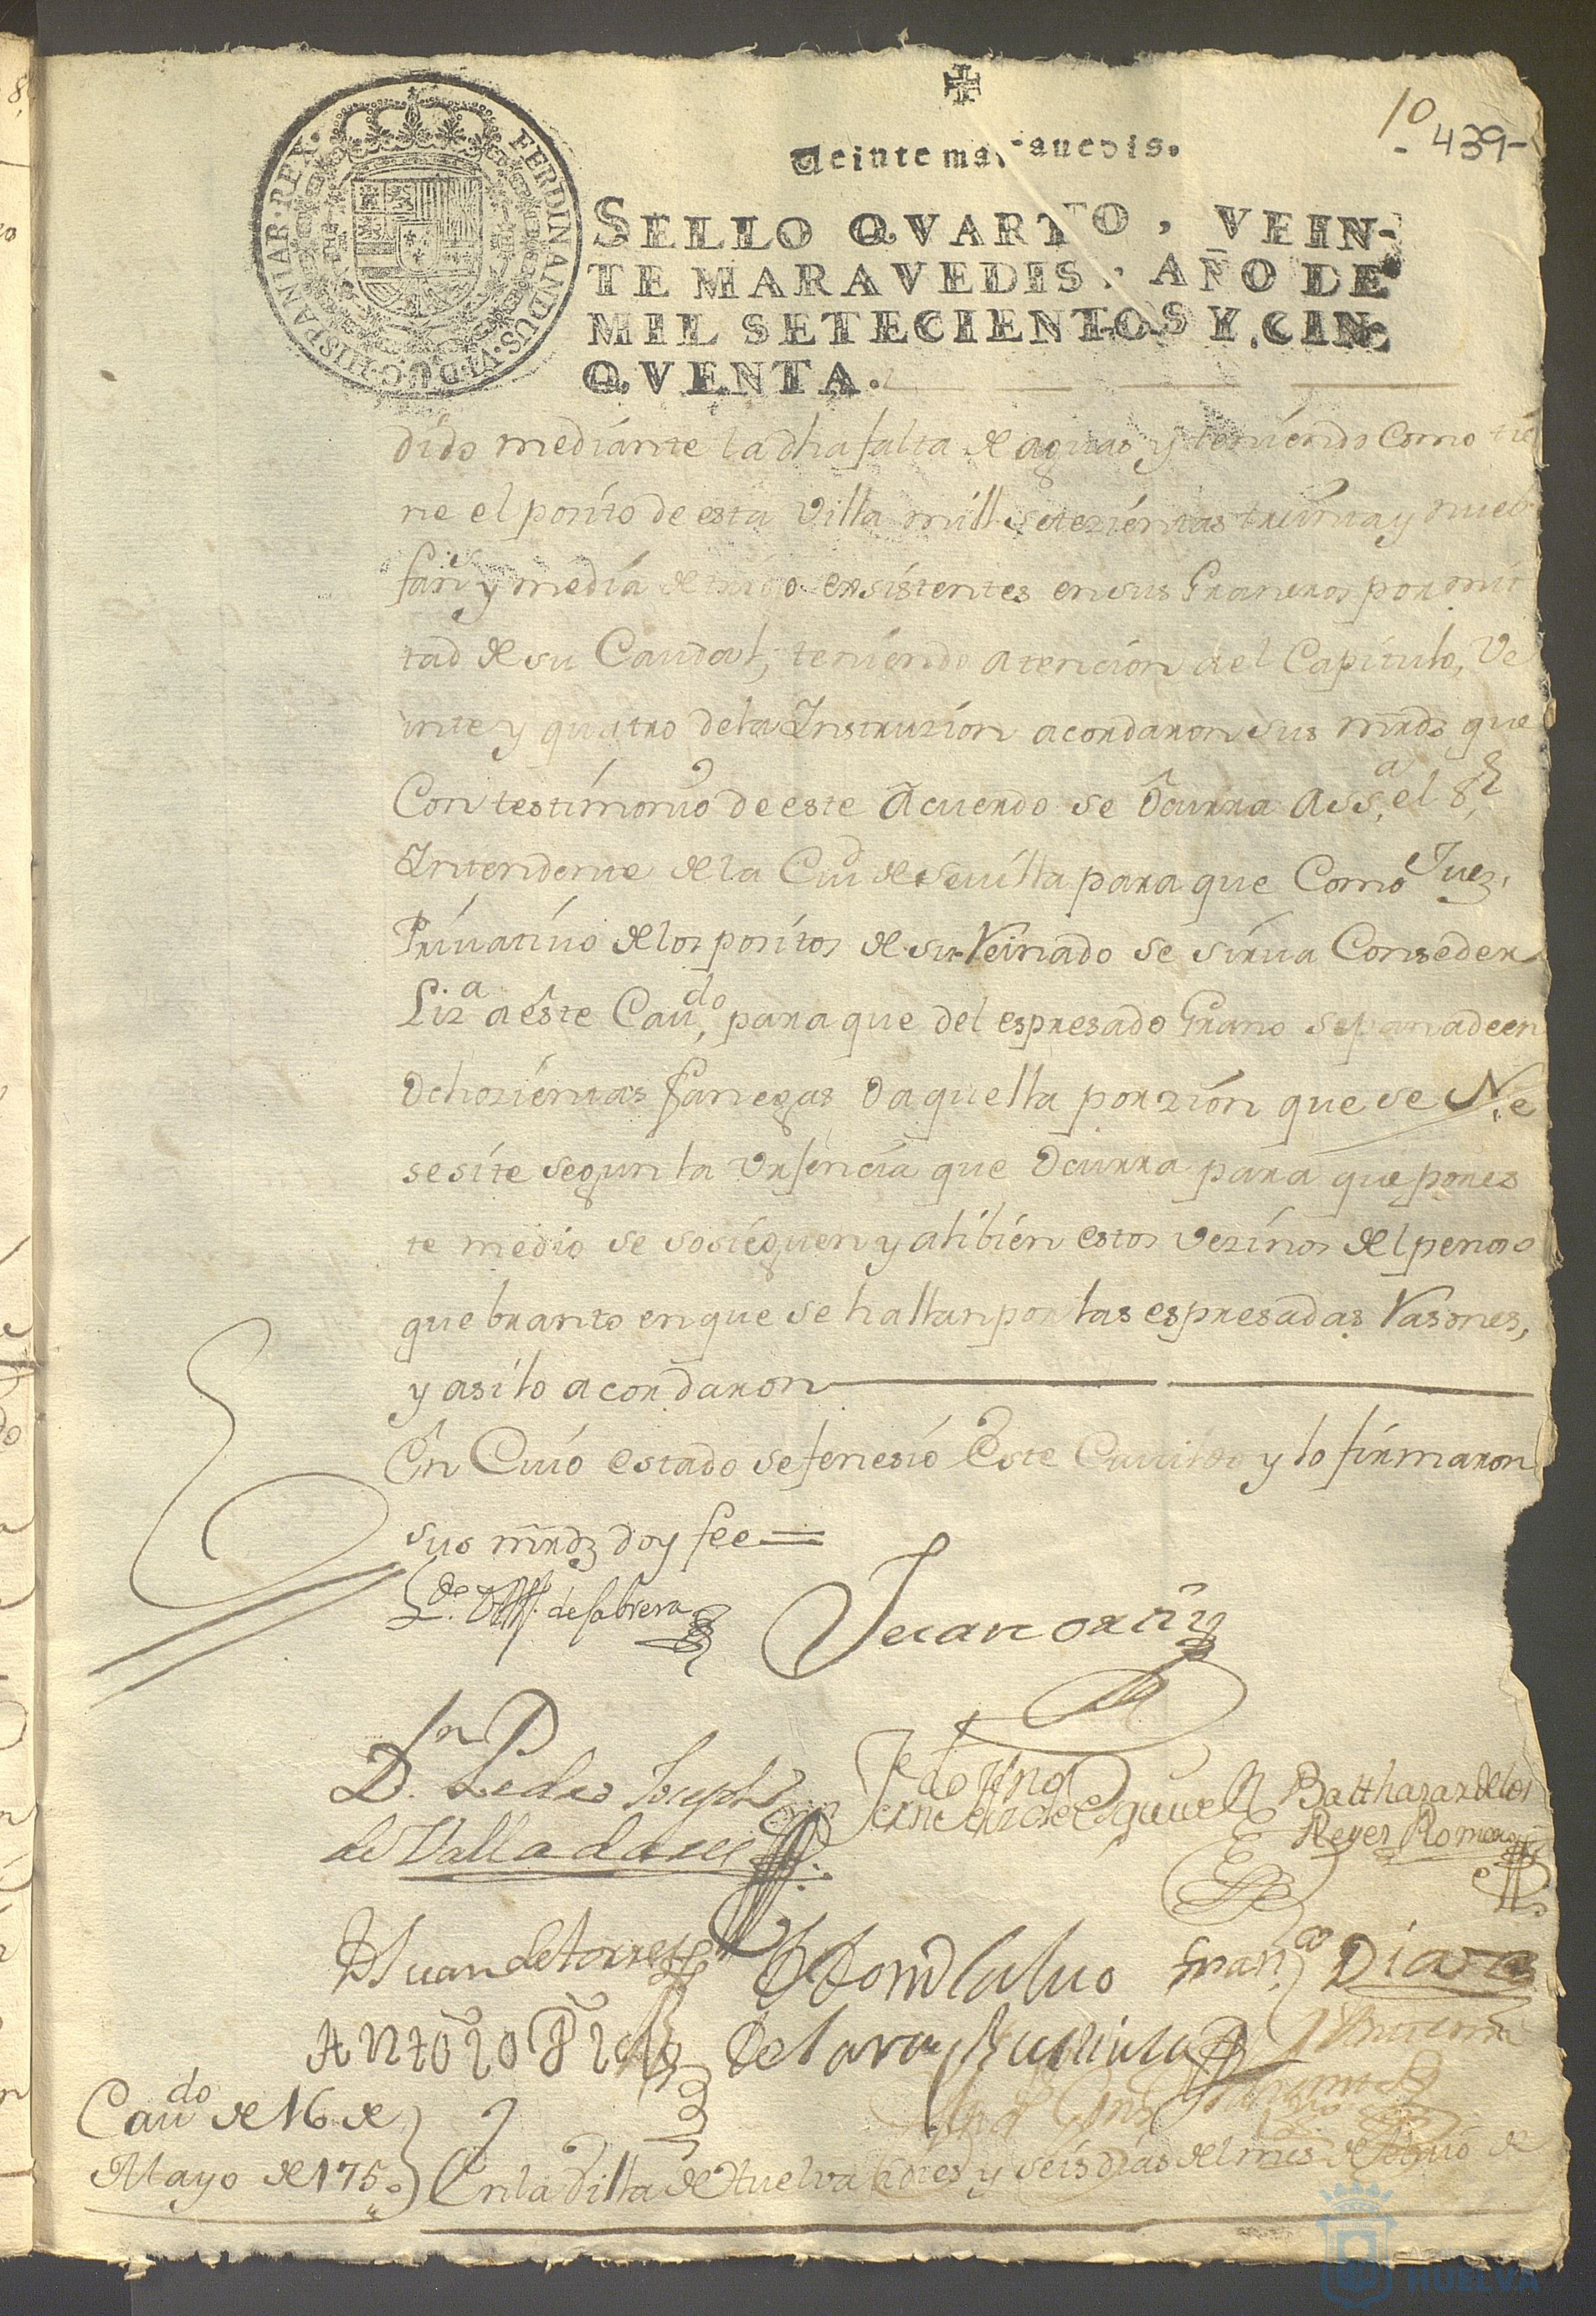 10
- 439 -
Veinte maravedis.
SELLO QVARTO, VEIN-
TE MARAVEDIS, AÑO DE
MIL SETECIENTOS Y CIN-
QVENTA.
FERDINANDUS.VI.D.G.HISPANIAR.REX.
dido mediante la dha falta de aguas y teniendo Como tie
ne el posito de esta Villa mill setezientas treinta y nueb
fans y media de trigo exsistentes en sus Graneros por mi
tad de su Caudal, teniendo atencion a el Capitulo, Ve
inte y quatro de la Instruzion acordaron sus mrds que
Con testimonio de este Acuerdo se Ocurra a SSa, el Sr
Intendente de la Ciud de Sevilla para que Como Juez,
Privativo de los positos de su Reinado se sirva Conseder
Liza a este Caudo, para que del espresado Grano separade en
Ochozientas fanegas Daquella porzion que se Ne
sesite segun la Vrsencia que Ocurra para que por es
te medio se sosieguen y alibien estos vezinos del penoso
quebranto en que se hallan por las espresadas Rasones,
y asi lo acordaron
En Cuio estado se fenesio Este Cauildo y lo firmaron
sus mrds doy fee =
Ldo Dn de Cabrera Juan ortiz
Dn Pedro Joseph
de Valladares
Fernz de Esquivel Balthazar de los
Reyes Romero
Juan de torres Calvo Franco Diaz
Antonio de Lara
Caudo de 16 de
Mayo de 1750
En la Villa de Huelva a dies y seis dias del mes de Maio de
HUELVA